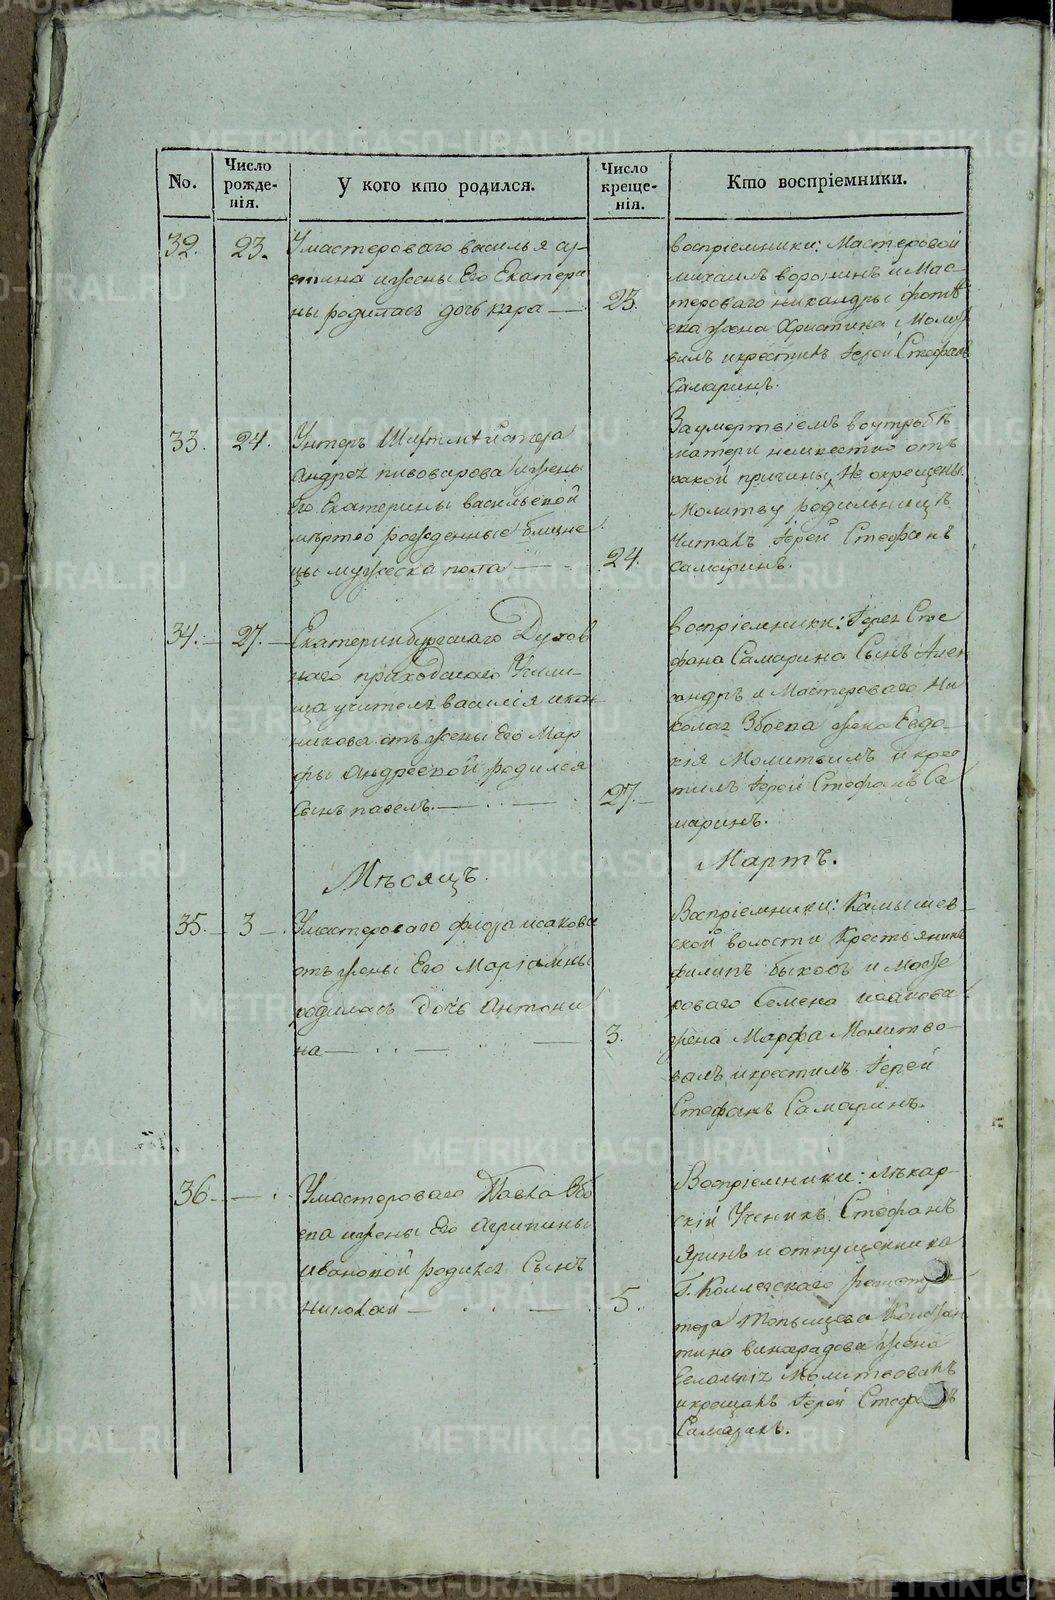 No.
Число
рожде-
нія.
У кого кто родился.
Число
креще-
нія.
Кто воспріемники.
32.
23.
Умастероваго василья су-
етина ижены Его Екатери
ны родилась дочь кира —
23.
воспріемники: Мастеровой
михаилъ воронинъ и Мас-
тероваго никандры
жена Христина Молит
вилъ икрестилъ Іерей Стефанъ
Самаринъ.
33.
24.
Унтеръ Шихтмейстера
Андрея пивоварова ижены
Его Екатерины васильевой
мѣртво рожденные близне
цы мужеска пола —
24.
Заумертвіемъ воутробѣ
матери неизвестно отъ
какой причины, Не окрещены.
Молитву родильницѣ
Читалъ Іерей Стефанъ
Самаринъ.
34. —
27. —
Екатеринбургскаго Духов
наго приходскаго Учили-
ща учителя василія икон
никова отъ жены Его Мар
фы Андреевой родился
Сынъ павелъ. —
27. —
воспріемники: Іерея Сте
фана Самарина Сынъ Алек
сандръ и Мастероваго Ни
колая Збоева жена Евдо-
кія Молитвилъ икрес
тилъ Іерей Стефанъ Са
маринъ.
Мѣсяцъ
Мартъ.
35. —
3 —
Умастероваго флора исакова
отъ жены Его Маріамны
родилась Дочь Антони
на —
3.
Воспріемники: Камышев-
ской волости Крестьянинъ
филипъ быковъ и Масте
роваго Семена исакова
жена Марфа Молитво-
валъ икрестилъ Іерей
Стефанъ Самаринъ.
36 —
— .
Умастероваго Павла Збо
ева ижены Его Агрипины
ивановой родился Сынъ
николай —
5.
Воспріемники: лѣкар-
скій Ученикъ Стефанъ
Яринъ и отпущенника
Г. Коллегскаго регистра
тора
тина винаградова жена
Молитвовалъ
икрещалъ Іерей Стефанъ
Самаринъ.
METRIKI.GASO-URAL.RU